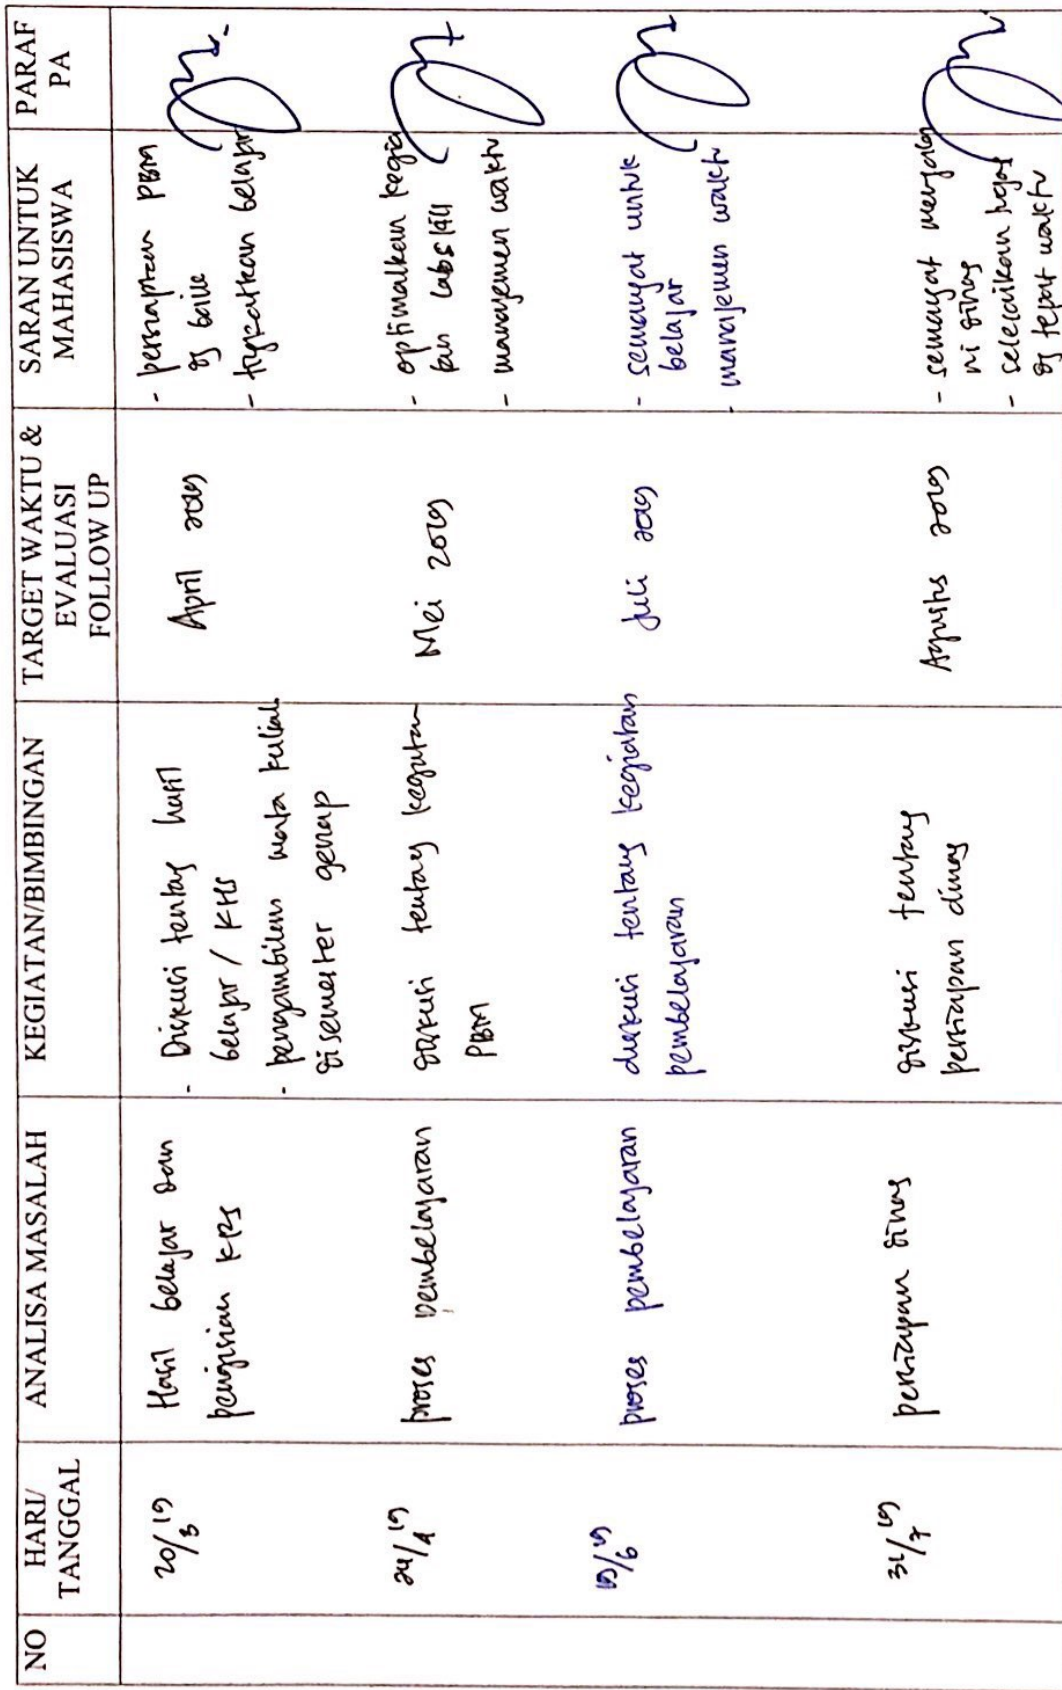 NO
HARI/
TANGGAL
ANALISA MASALAH
KEGIATAN/BIMBINGAN
TARGET WAKTU &
EVALUASI
FOLLOW UP
SARAN UNTUK
MAHASISWA
PARAF
PA
20/3 19
Hasil belajar dan
pengisian KRS
- Diskusi tentang hasil
belajar / KHS
- pengambilan mata kuliah
disemester genap
April 2019
- persiapan PBM
dg baik
- tingkatkan belajar
24/4 19
proses pembelajaran
diskusi tentang kegiatan
PBM
Mei 2019
- optimalkan kegia
tan labskill
- manajemen waktu
19/6 19
proses pembelajaran
diskusi tentang kegiatan
pembelajaran
Juli 2019
- semangat untuk
belajar
- manajemen waktu
31/7 19
persiapan dinas
diskusi tentang
persiapan dinas
Agustus 2019
- semangat menjala
ni dinas
- selesaikan tugas
dg tepat waktu